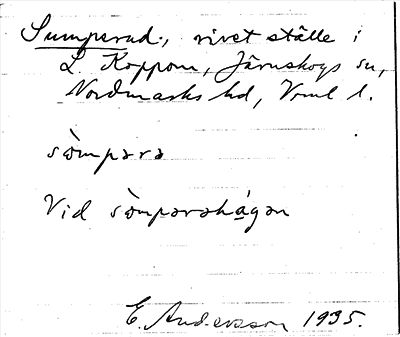 Sumperud., rivet ställe i
L. Koppom, Järnskogs sn,
Nordmarks hd, Vrml l.
sòmpərə
Vid sòmpərəhágən
E. Andersson 1935.